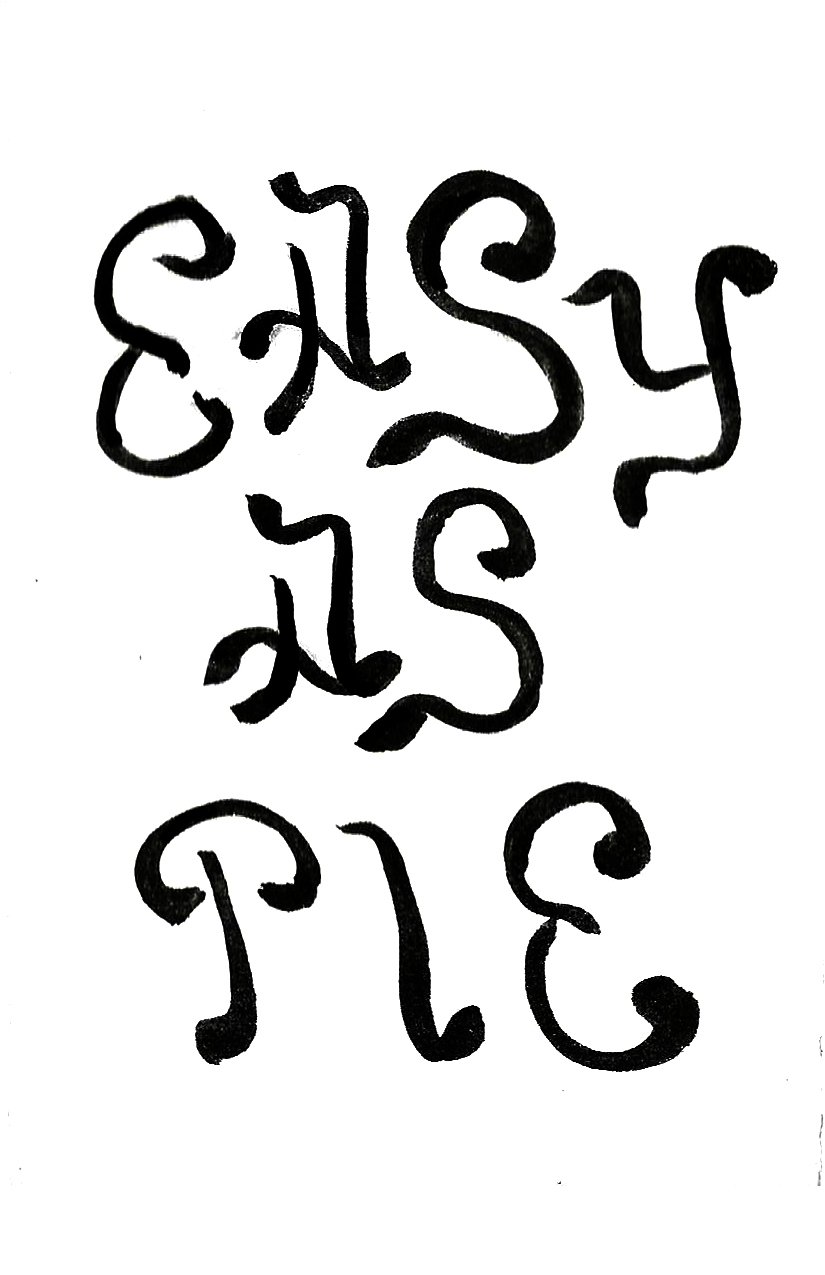 EASY
AS
PIE